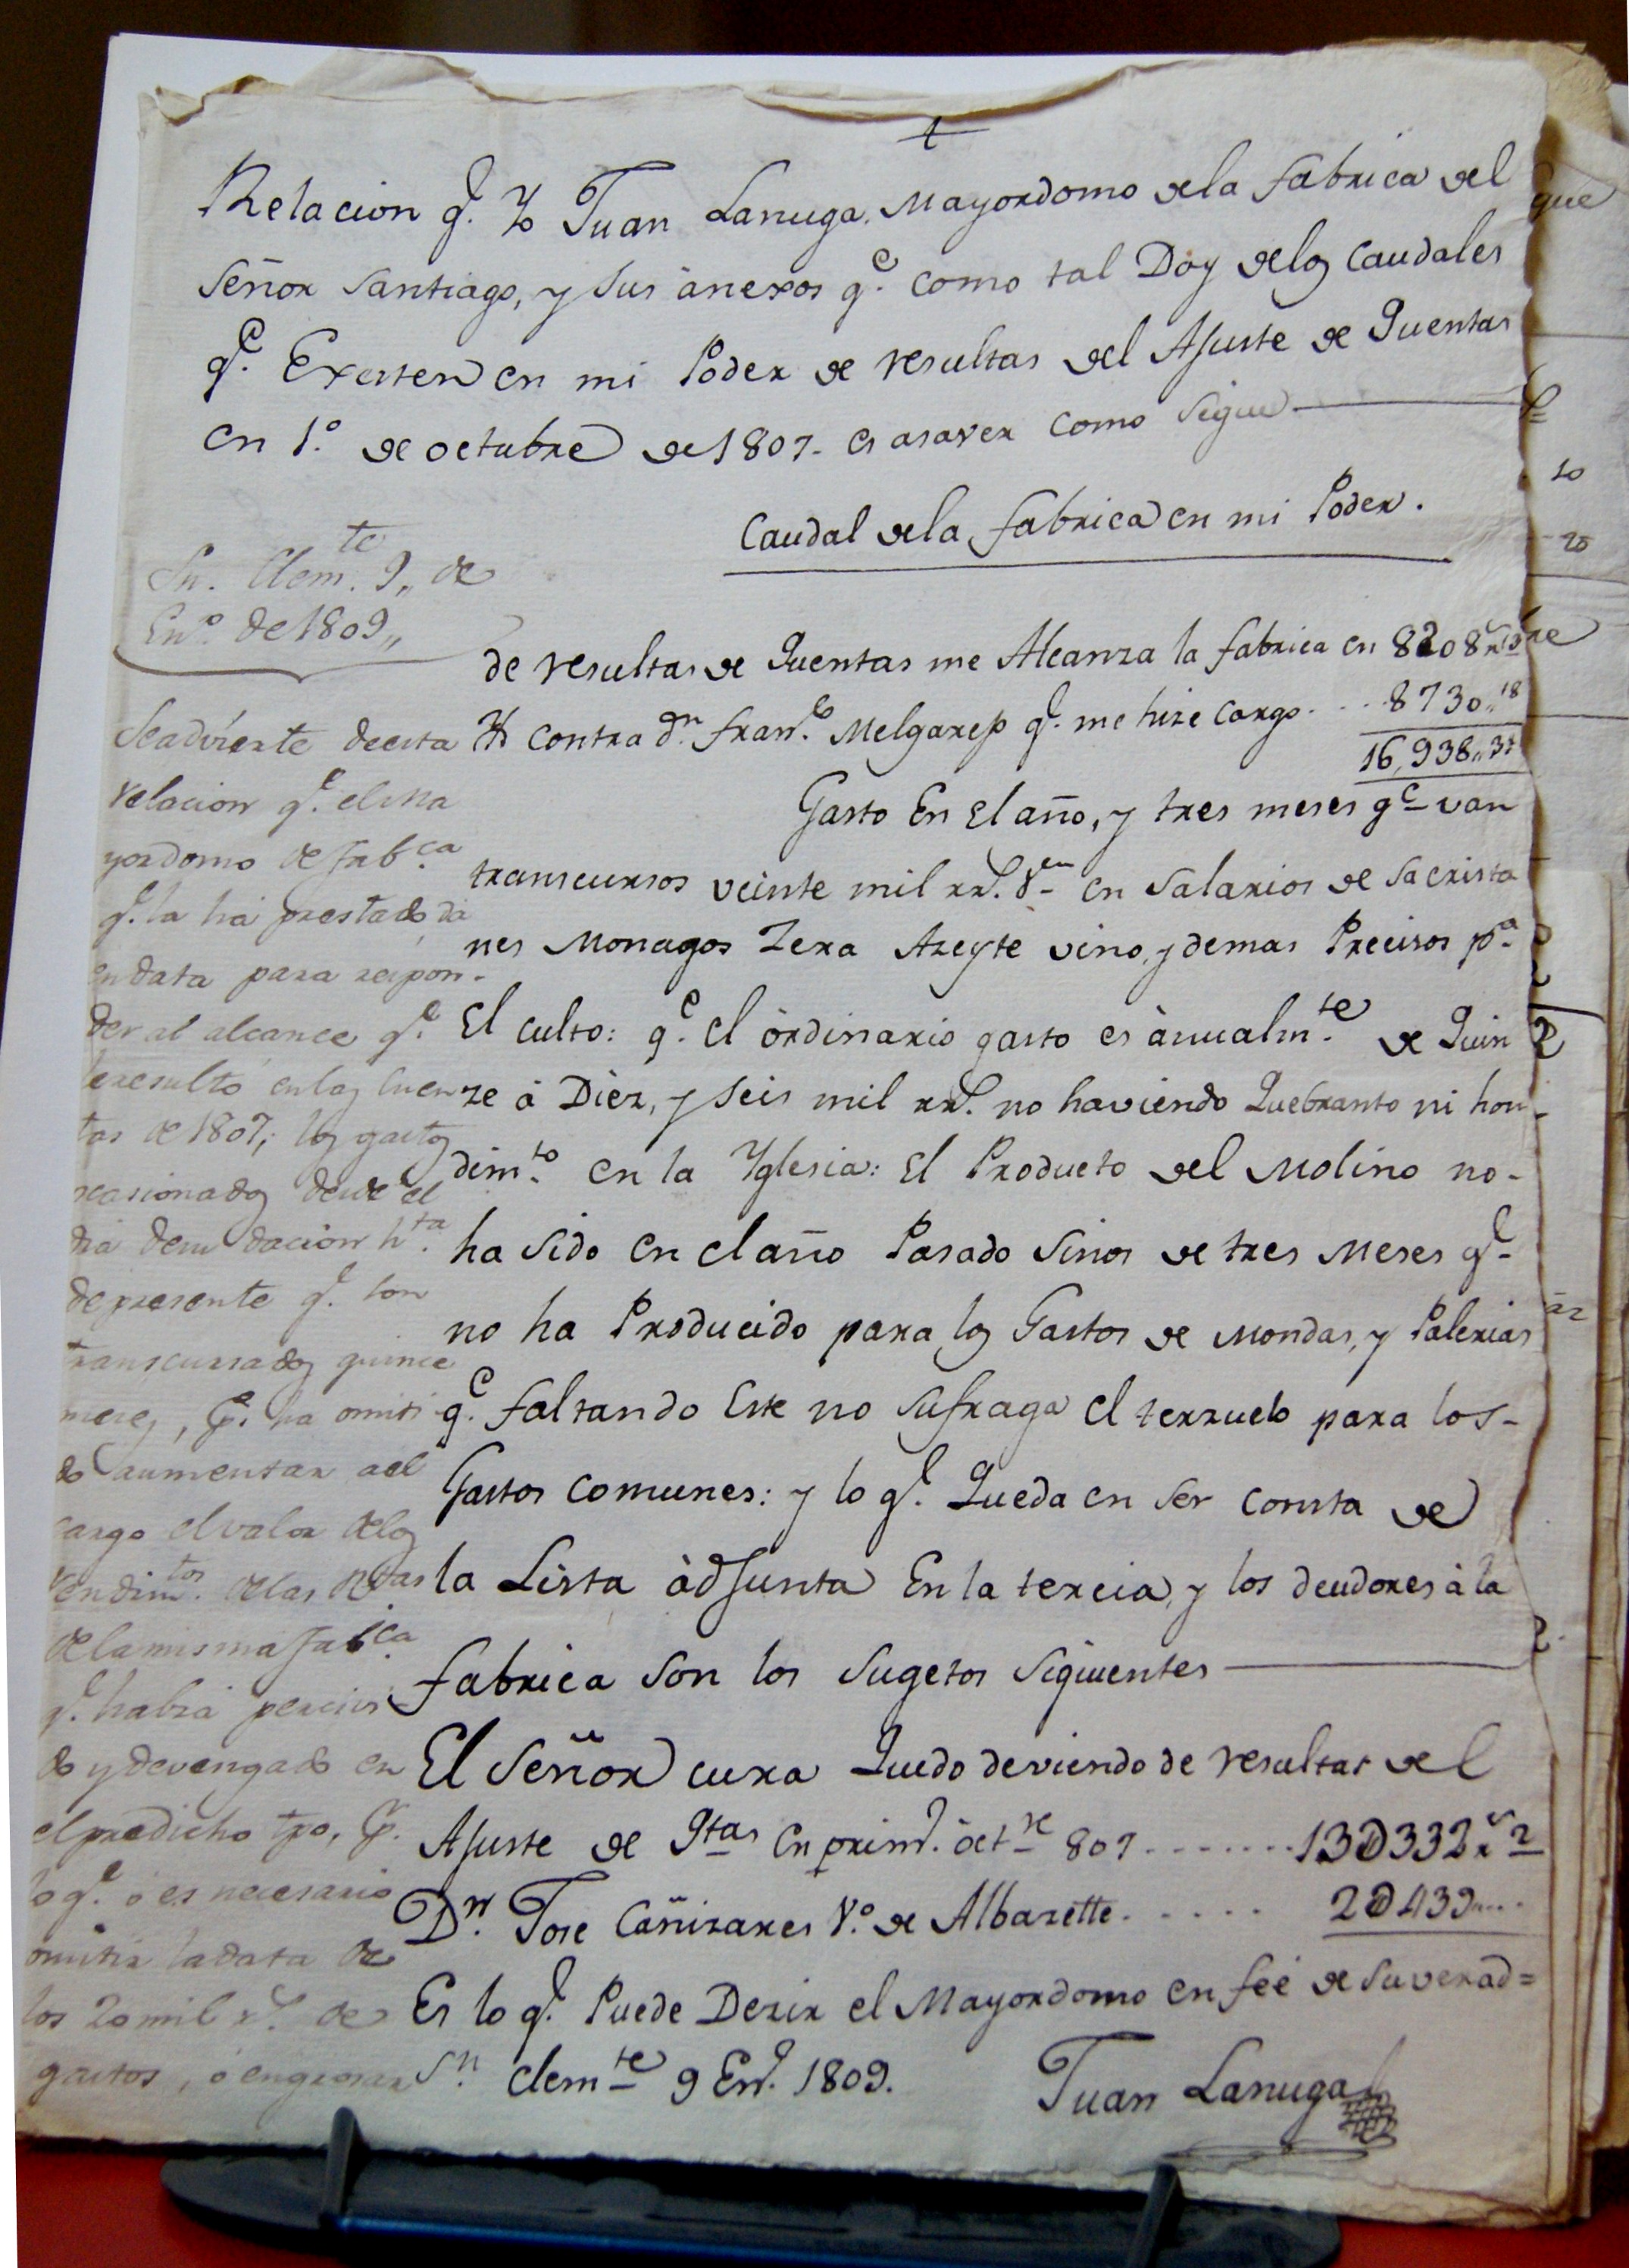 Relacion q.e Yo Juan Lanuga, Mayordomo dela fabrica del
Señor Santiago, y sus ànexos q.e como tal Doy delos Caudales
q.e Existen en mi Poder de resultas del Ajuste de Quentas
en 1.º de octubre de 1807. es asaver como sigue
Caudal dela fabrica en mi Poder.
de resultas de Quentas me Alcanza la fabrica en 8208
Yt contra d.n fran.co Melgarejo q.e me hize cargo 8730,,18
16,938,,31
Gasto En el año, y tres meses q.e van
transcursos veinte mil rr.s v.n en Salarios de Sacrista
nes Monagos Zera Azeyte vino, y demas Precisos p.a
El culto: q.e el òrdinario gasto es ànualm.te de Quin
ze à Dièz, y seis mil rr.s no haviendo Quebranto ni hon-
dim.to en la Yglesia: El Producto del Molino no-
ha sido en el año Pasado sinos de tres Meses q.e
no ha Producido para los Gastos de Mondas, y Palerias
q.e faltando Este no sufraga el terzuelo para los-
Gastos comunes: y lo q.e Queda en ser consta de
la Lista àdjunta En la tercia, y los deudores à la
fabrica son los Sugetos Siguientes
El Señor cura Quedo deviendo de resultas del
Ajuste de Qtas en prim.o òct.re 807 13D332 r.s 2
D.n Jose Cañizares V.o de Albazette 2D439
Es lo q.e Puede Dezir el Mayordomo en feé de su verad=
S.n Clem.te 9 En.o 1809.
Juan Lanuga
Sn. Clem.te 9,, de
En.o de 1809,,
Se advierte de esta
relacion q.e el Ma
yordomo de fabca
q.e la há prestado, da
en data para respon-
der al alcance q.e
le resultó en las cuen
tas de 1807; los gastos
ocasionados desde el
dia de su dacion h.ta
de presente q.e son
transcurrados quince
meses, ha omiti
do aumentar a el
cargo el valor delos
rendim.tos de las Rtas
de la misma fab.ca
q.e habrá percivi
do y devengado en
el predicho tpo,
lo q.e ó es necesario
omitir la data de
los 20 mil r.s de
gastos, ó engrosar